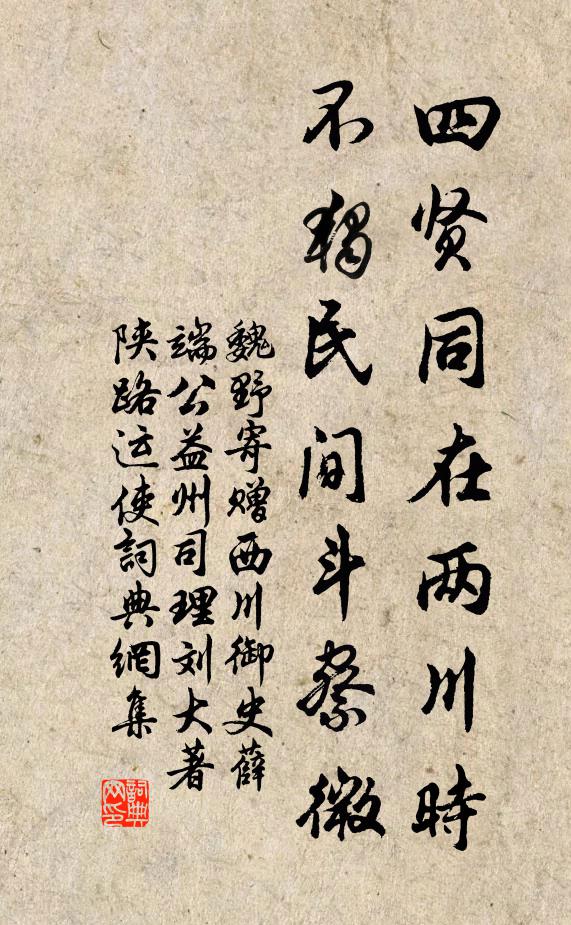 四贤同在两川時
不獨民间斗察微
魏野寄赠西川御史薛
端公益州司理刘大著
陕路运使詞典網集
詞典
网印